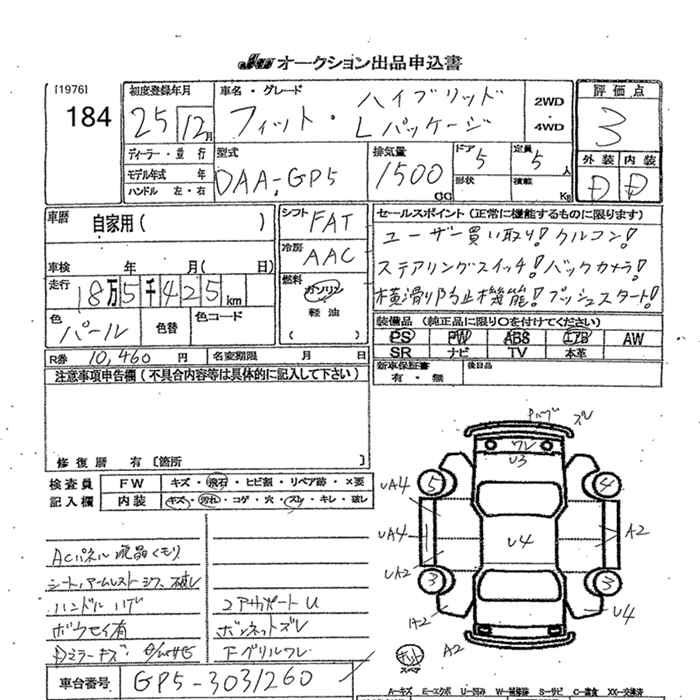 JU オークション出品申込書
[1976]
184
初度登録年月
25 12月
車名・グレード
フィット・ハイブリッド
Lパッケージ
2WD
・
4WD
評価点
3
ディーラー・並行
モデル年式 年
ハンドル 左・右
型式
DAA-GP5
排気量
1500
CC
ドア 5
形状
定員 5 人
積載 Kg
外装 内装
D D
車暦 自家用( )
車検 年 月( 日)
走行 18万5千425km
色 パール
色替
色コード
シフト FAT
冷房 AAC
燃料
ガソリン
軽油
( )
セールスポイント(正常に機能するものに限ります)
ユーザー買い取り!クルコン!
ステアリングスイッチ!バックカメラ!
横滑り防止機能!プッシュスタート!
装備品(純正品に限り〇を付けてください)
PS PW ABS エアB AW
SR ナビ TV 本革
新車保証書
有・無
後日品
R券 10,460 円
名変期限 月 日
注意事項申告欄(不具合内容等は具体的に記入して下さい)
修復暦 有〔箇所 〕
検査員
記入欄
FW キズ・飛石・ヒビ割・リペア跡・×要
内装 キズ・汚れ・コゲ・穴・スレ・キレ・破レ
ACパネル液晶くもり
シート、アームレスト シワ、破レ
ハンドル ハゲ
ボウセイ有
Dミラーキズ
コアサポートU
ボンネットズレ
Fグリルワレ
車台番号 GP5-3031260
ズレ
ワレ
U3
5
4
UA4
UA4
U4
A2
UA2
3
3
A2
U4
キット
スペア
A2
A-キズ E-エクボ U-凹み W-補修跡 S-サビ C-腐食 XX-交換済